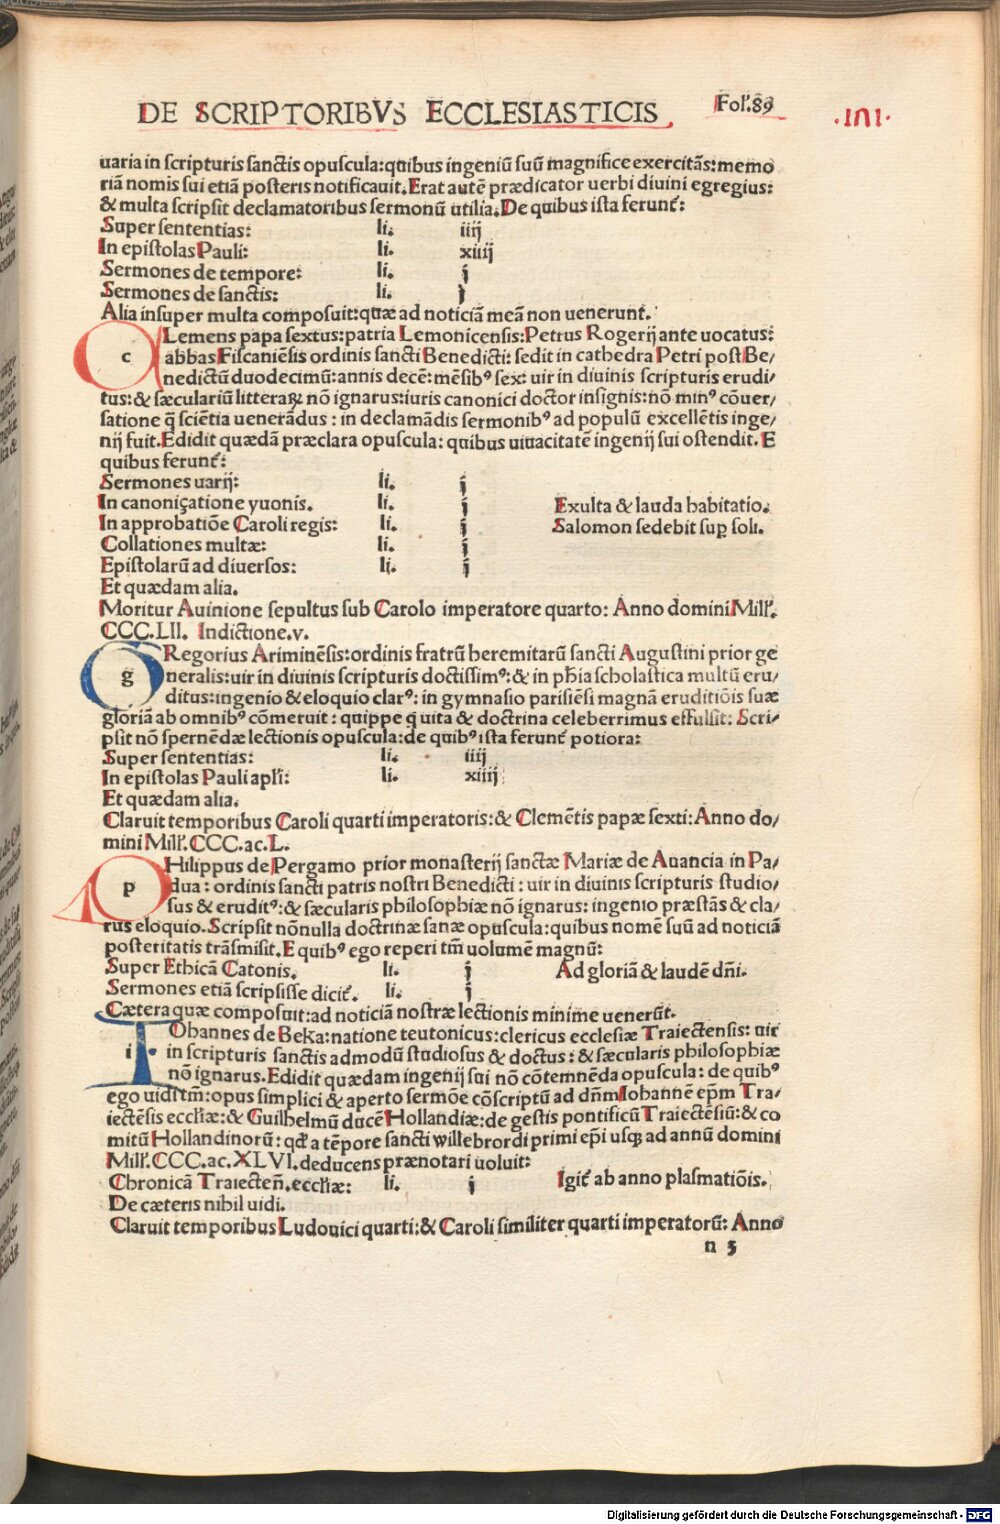 DE SCRIPTORIBVS ECCLESIASTICIS Fol.89 .IIII.
uaria in scripturis sanctis opuscula:quibus ingeniū suū magnifice exercitās:memo
riā nomis sui etiā posteris notificauit.Erat autē prædicator uerbi diuini egregius:
& multa scripsit declamatoribus sermonū utilia.De quibus ista ferunt̄:
Super sententias: li. iiij
In epistolas Pauli: li. xiiij
Sermones de tempore: li. j
Sermones de sanctis: li. j
Alia insuper multa composuit:quæ ad noticiā meā non uenerunt.
CLemens papa sextus:patria Lemonicensis:Petrus Rogerij ante uocatus:
abbas Fiscaniēsis ordinis sancti Benedicti: sedit in cathedra Petri post Be/
nedictū duodecimū:annis decē:mēsibꝰ sex: uir in diuinis scripturis erudi/
tus:& sæculariū litteraꝝ nō ignarus:iuris canonici doctor insignis:nō minꝰ cōuer/
satione q̄ sciētia uenerādus : in declamādis sermonibꝰ ad populū excellētis inge/
nij fuit.Edidit quædā præclara opuscula: quibus uiuacitatē ingenij sui ostendit. E
quibus ferunt̄:
Sermones uarij: li. j
In canoniçatione yuonis. li. j Exulta & lauda habitatio.
In approbatiōe Caroli regis: li. j Salomon sedebit suꝑ soli.
Collationes multæ: li. j
Epistolarū ad diuersos: li. j
Et quædam alia.
Moritur Auinione sepultus sub Carolo imperatore quarto: Anno domini Mill'.
CCC.LII. Indictione.v.
GRegorius Ariminēsis:ordinis fratrū heremitarū sancti Augustini prior ge
neralis:uir in diuinis scripturis doctissimꝰ:& in ph̄ia scholastica multū eru/
ditus:ingenio & eloquio clarꝰ: in gymnasio parisiēsi magnā eruditiōis suæ
gloriā ab omnibꝰ cōmeruit : quippe q̄ uita & doctrina celeberrimus effulsit: Scri/
psit nō spernēdæ lectionis opuscula:de quibꝰ ista ferunt̄ potiora:
Super sententias: li. iiij
In epistolas Pauli apl'i: li. xiiij
Et quædam alia.
Claruit temporibus Caroli quarti imperatoris:& Clemētis papæ sexti:Anno do/
mini Mill'.CCC.ac.L.
PHilippus de Pergamo prior monasterij sanctæ Mariæ de Auancia in Pa/
dua : ordinis sancti patris nostri Benedicti : uir in diuinis scripturis studio/
sus & eruditꝰ:& sæcularis philosophiæ nō ignarus: ingenio præstās & cla/
rus eloquio.Scripsit nōnulla doctrinæ sanæ opuscula:quibus nomē suū ad noticiā
posteritatis trāsmisit.E quibꝰ ego reperi tm̄ uolumē magnū:
Super Ethicā Catonis. li. j Ad gloriā & laudē dn̄i.
Sermones etiā scripsisse dicit̄. li. j
Cætera quæ composuit:ad noticiā nostræ lectionis minime uenerūt.
IOhannes de Beka:natione teutonicus:clericus ecclesiæ Traiectensis: uir
in scripturis sanctis admodū studiosus & doctus: & sæcularis philosophiæ
nō ignarus.Edidit quædam ingenij sui nō cōtemnēda opuscula: de quibꝰ
ego uidi tm̄:opus simplici & aperto sermōe cōscriptū ad dn̄m Iohannē ep̄m Tra/
iectēsis eccl'iæ:& Guilhelmū ducē Hollandiæ:de gestis pontificū Traiectēsiū:& co
mitū Hollandinorū: qđ a tēpore sancti willebrordi primi ep̄i usqꝫ ad annū domini
Mill'.CCC.ac.XLVI.deducens prænotari uoluit:
Chronicā Traiecten̄.eccl'iæ: li. j Igit̄ ab anno plasmatiōis.
De cæteris nihil uidi.
Claruit temporibus Ludouici quarti:& Caroli similiter quarti imperatorū: Anno
n 3
Digitalisierung gefördert durch die Deutsche Forschungsgemeinschaft - DFG